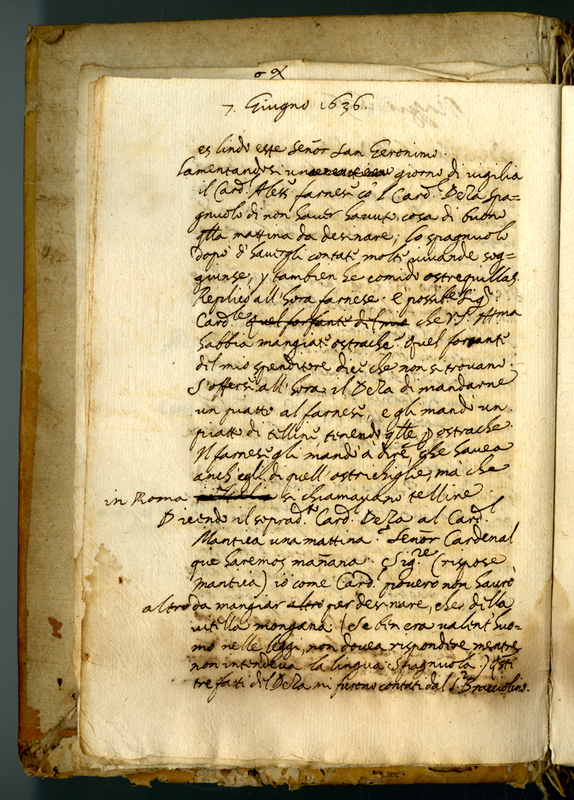 7. Giugno 1636.
es lindo este señor San Geronimo.
Lamentandosi un giorno di vigilia
il Card. Aless. farnese co 'l Card. Deza spa=
gnuolo di non haver havuto cosa di buon
q̃lla mattina da desinare; lo spagnuolo
dopo d'havergli contate molte vivande sog=
giunse, y tambien he comido ostreguillas.
Replicò all'hora farnese. è possibile Sig.r
Card.le quel forfante del mio che V.S. Ill.ma
habbia mangiate ostrache? Quel forfante
del mio spenditore dice che non si trovano.
S'offerse all'hora il Deza di mandarne
un piatto al farnese, e gli mandò un
piatto di telline, tenendo q̃lle p ostrache.
Il farnese gli mandò a dire, che havea
anch'egli di quell'ostrichiglie, ma che
in Roma si chiamavano telline.
Dicendo il soprad.to Card. Deza al Card.l
Mantica una mattina. Señor Cardenal
que haremos mañana. Sig.re (rispose
mantica) io come Card. povero non havrò
altro da mangiar altro per desinare, che della
vitella mongana. (Se ben era valent'huo=
mo nelle leggi, non dovea rispondere mentre
non intendeva la lingua Spagnuola.) Q̃sti
tre fatti del Deza mi furono contati dal S.r Bracciolino.